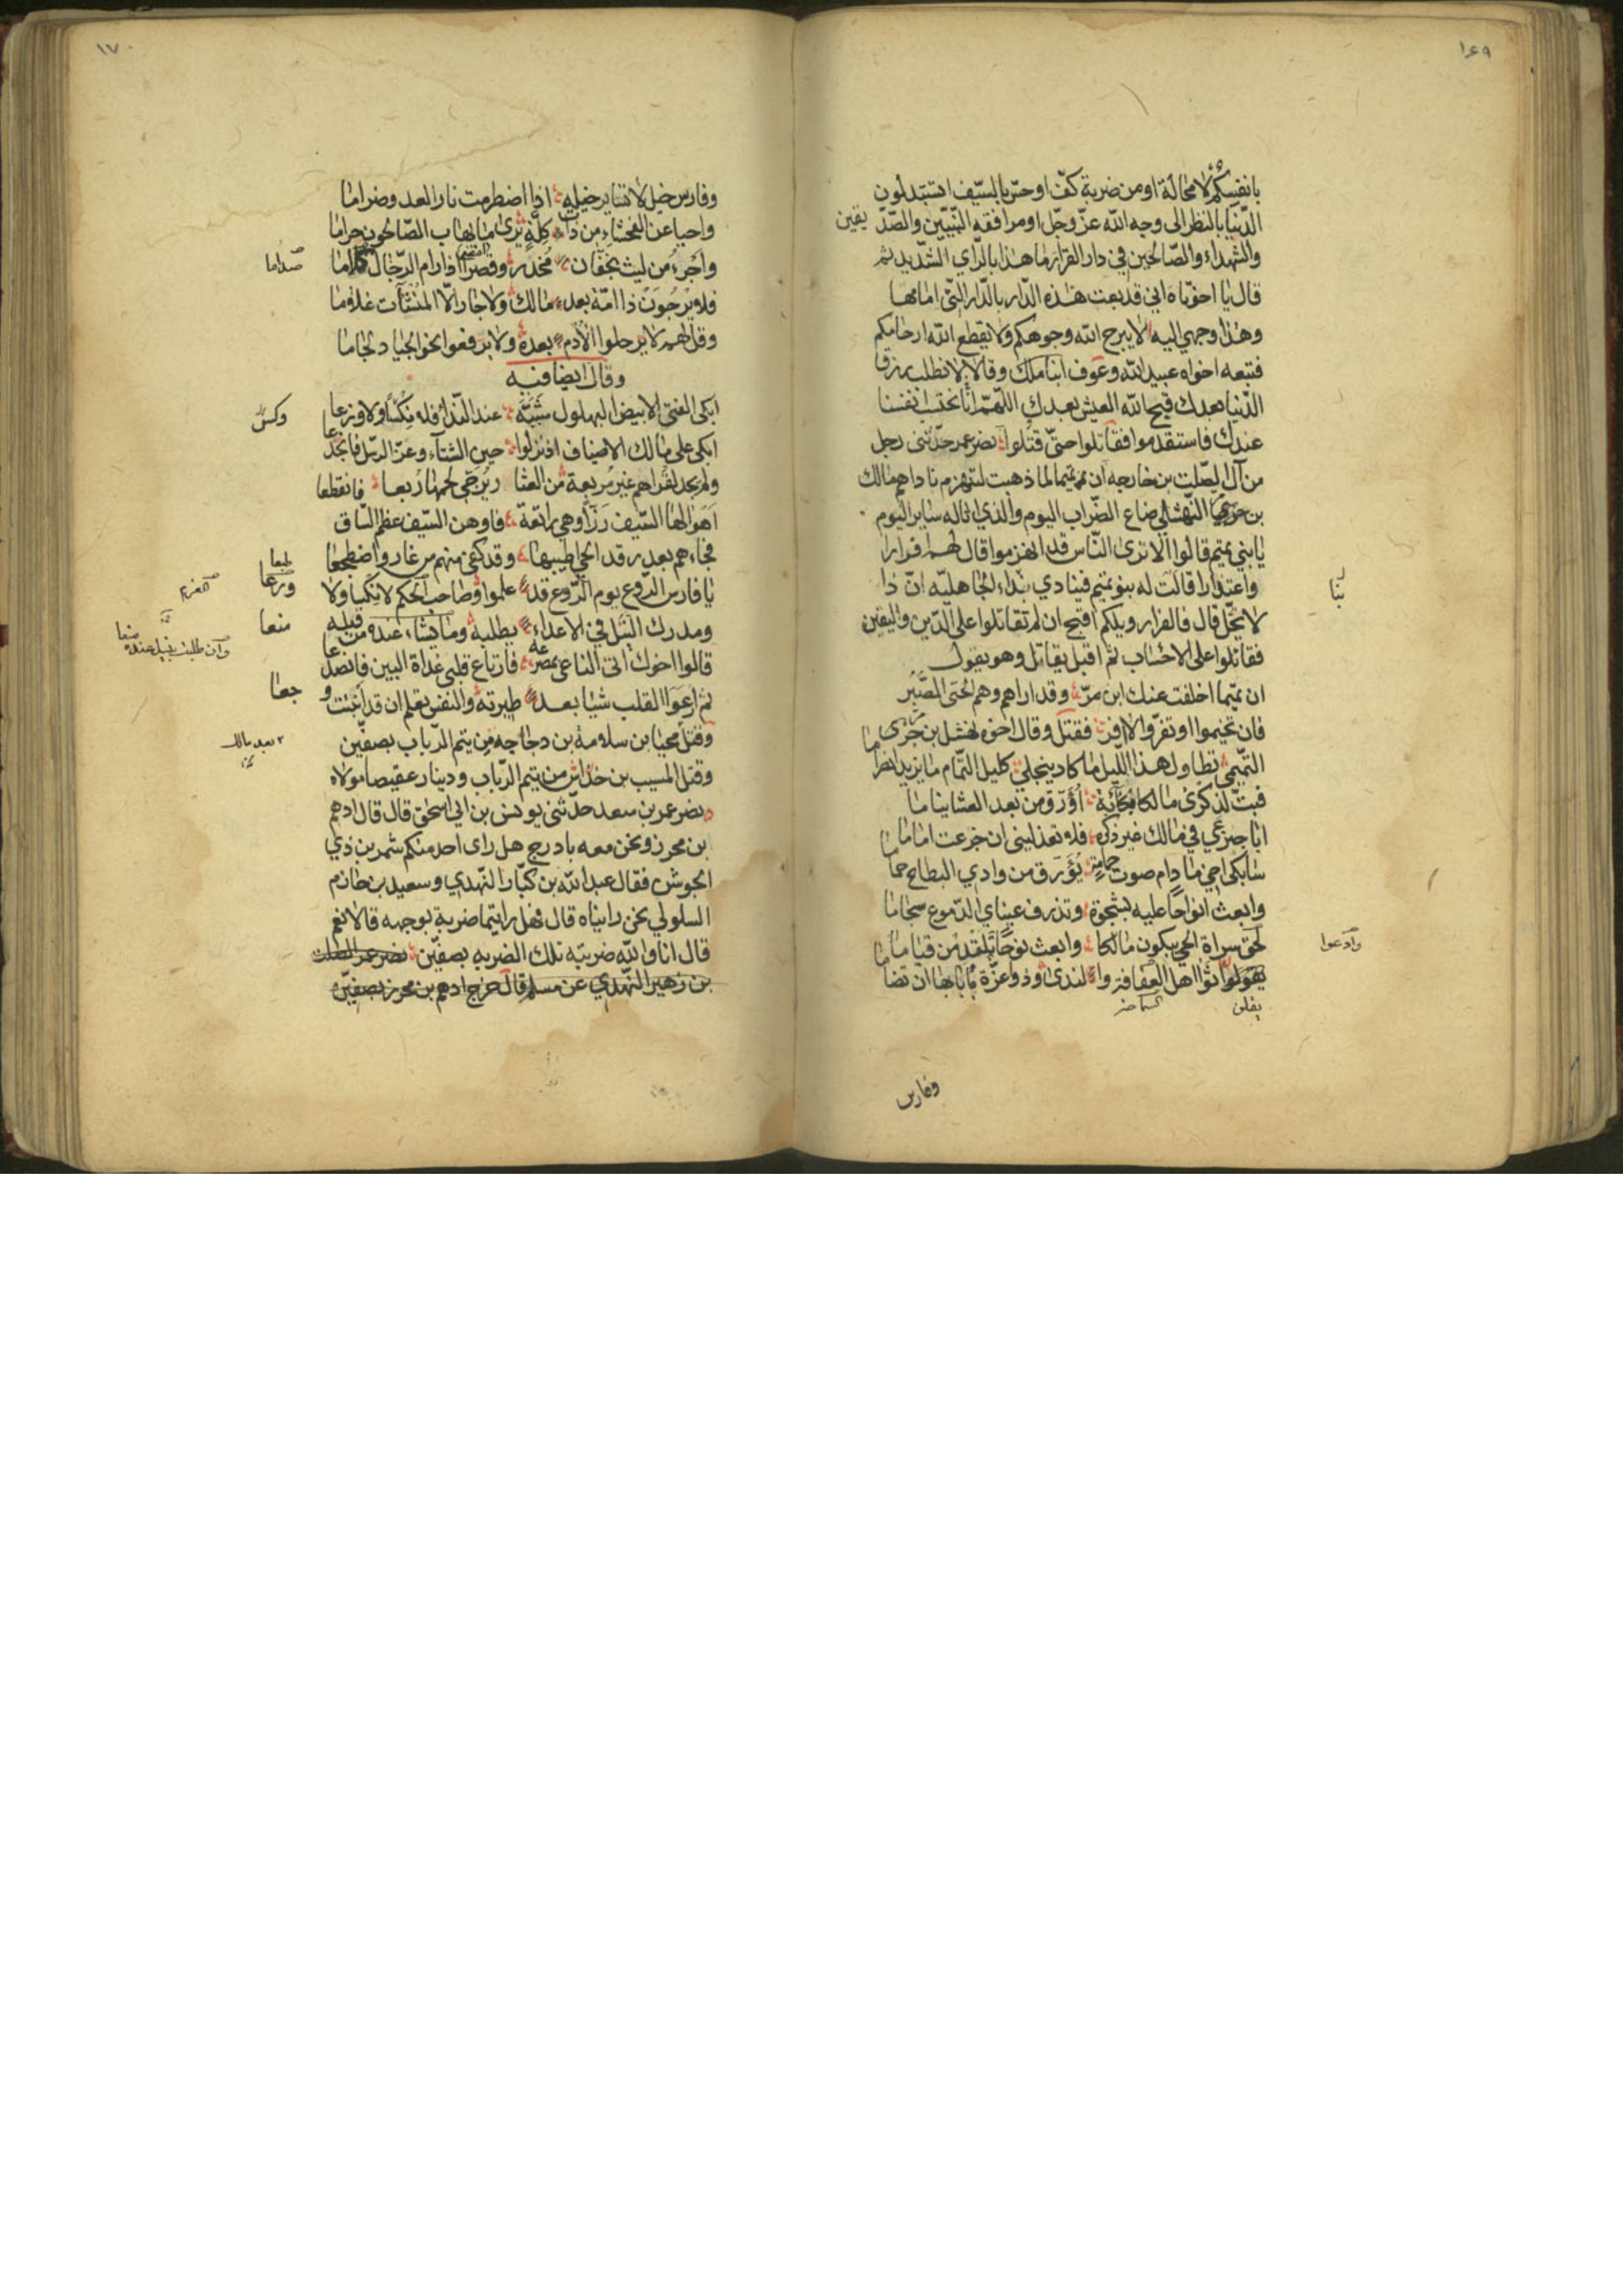 ١٦٩
بانفسكم لا محالة او من ضربة كفّ او حسّ بالسّيف اتستبدلون
الدّنيا بالنظر الى وجه الله عزّ وجلّ او مرافقه النّبيّين والصّدّ يقين
والشهداء والصّالحين في دار القرار ما هذا بالرّاي الشدّيد ثم
قال يا اخوتاه اني قد بعت هذه الدّار بالدّار التي امامها
وهذا وجهي اليه لا يبرح الله وجوهكم ولا يقطع الله ارحامكم
فتبعه اخواه عبيد الله وعوف ابنا ملك وقالا لا نطلب رزق
الدّنيا بعدك قبح الله العيش بعدك اللهمّ انا نحتسب انفسنا
عندك فاستقدموا فقاتلوا حتّى قتلوا نصر عمر حدّثني رجل
من آل الصّلت بن خارجه ان تميما لما ذهبت لتنهزم ناداهم مالك
بن حري النّهشلي ضاع الضّراب اليوم والذي اناله ساير اليوم
يا بني تميم قالوا الا ترى النّاس قد انهزموا قال لهم افرارا
واعتذارا قالت له بنو تميم فينادي بنداء الجاهليّه انّ ذا
لا يحلّ قال فالفرار ويلكم اقبح ان لم تقاتلوا على الدّين واليقين
فقاتلوا على الاحساب ثم اقبل يقاتل وهو يقول
ان تميما اخلفت عنك ابن مرّ وقد اراهم وهم الحيّ الصُّبُر
فان تخيموا او تفرّوا لا افر فقتل وقال اخوه نهشل بن حرّى
التّميمي تطاول هذا اللّيل ما كاد ينجلي كليل التّمام ما يزيد انصراما
فبتّ لذكرى مالك بكآبة اُؤرّق من بعد العشا نياما
ابا جزعي في مالك غير ذكره فلا تعذليني ان جزعت اماما
سابكى اخي ما دام صوت حمامة يُؤَرّق من وادي البطاح حماما
وابعث انواحًا عليه بسحرة وتذرف عيناي الدّموع سجاما
وادعوا
لحق سراة الحي يبكون مالكا وابعث نوحًا يلتقدمن قياما
يقولوا ثوا اهل العفافة والندى وذو عزّة يابا بها ان تضاما
يقلن
وفارس
١٧٠
وفارس خيل لا تساير خيله اذا اضطرمت نار العد وضراما
واحيا عن الفحشاء من ذات كلّة يرى ما يهاب الصّالحون حراما
واجرء من ليث بخفّان مخدر وقصرا اذا رام الرّجال
صداما
فلا يرجون ذا امّة بعد مالك ولا جازرا للمنشآت غلاما
وقل لهم لا يرحلوا الادم بعده ولا يرفعوا نحو الجياد لجاما
وقال ايضا فيه
ابكى الفتى الابيض البهلول سُنّته عند النّدا فلا نكسًا ولا ورعا
ابكى على مالك الاضياف اذ نزلوا حين الشتاء وعزّ الرّسل فانجدعا
ولم يجد لقراهم غير مربعة من العشا ر يزجّي لحمها ربعا فانقطعا
اهوا لها السّيف رزّا وهي راتعة فاوهن السّيف عظم السّاق
فجاءهم بعد رقد الحي اطيبها وقد كفى منهم من غاب واضطجعا
يا فارس الرّوع يوم الرّوع قد علموا وصاحب الحكم لا نكبا ولا
ومدرك التّبل في الاعداء يطلبه وما يشاء عنده من قبله
منعا
قالوا اخوك اتى الناعى بمصرعه فارتاع قلبى غداة البين فانصدعا
ثم ارعوا القلب شيئا بعد طيرته والنفس يعلم ان قد اثبتت و جعا
وقتل محيا بن سلامة بن دجاجه من تيم الرّباب بصفّين
وقتل المسيب بن خداش من تيم الرّباب ودينار عقيصا مولاه
نصر عمر بن سعد حدّثني يونس بن ابي اسحق قال قال ادهم
بن محرز ونحن معه باذرح هل راى احد منكم شمر بن ذي
الجوشن فقال عبد الله بن كبّار النّهدي وسعيد بن حازم
السلولي نحن رايناه قال فهل رايتما ضربة بوجهه قالا نعم
قال انا والله ضربته تلك الضربه بصفّين نصر عمر الصلت
بن زهير النّهدي عن مسلم قال خرج ادهم بن محرز بصفّين